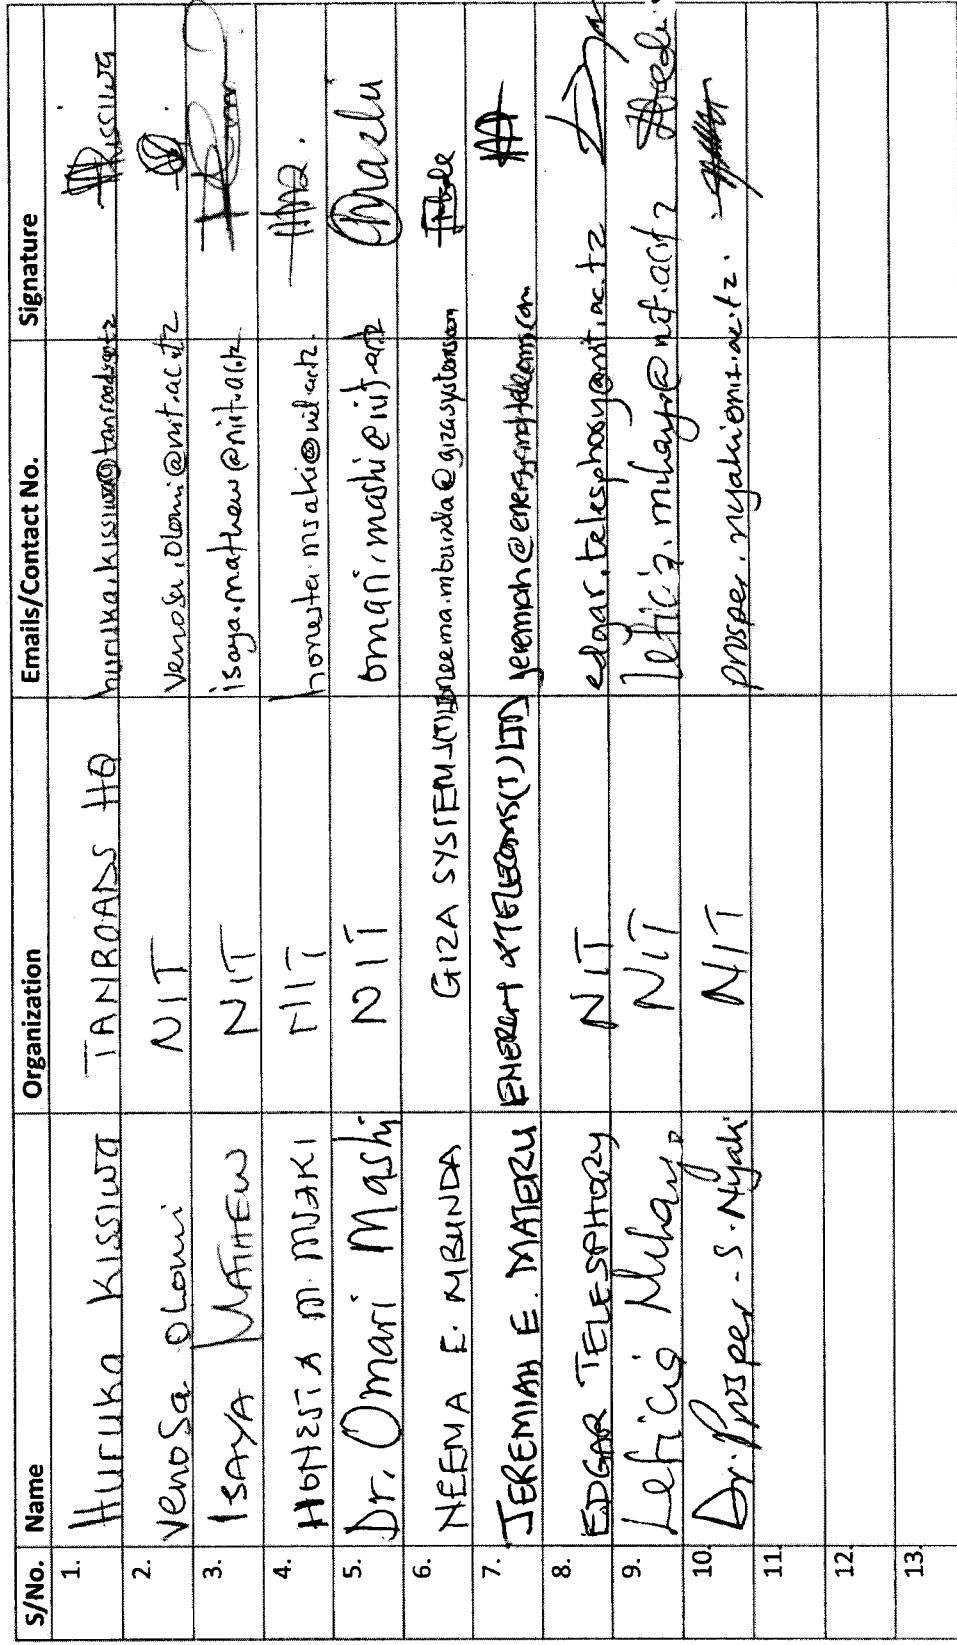 S/No. Name Organization Emails/Contact No. Signature
1. Huruka Kissiwa TANROADS HQ huruka.kissiwa@tanroads Kissiwa
2. Venosa Olomi NIT venosa.olomi@nit.ac.tz
3. ISAYA MATHEW NIT isaya.mathew@nit.ac.tz
4. HONESTA M. MSAKI NIT honesta.msaki@nit.ac.tz.
5. Dr. Omari Mashi NIT omari.mashi@nit.ac.tz Mashi
6. NEEMA E. MBUNDA GIZA SYSTEMS(T) neema.mbunda@gizasystems.com
7. JEREMIAH E. MATERU ENERGY & TELECOMS(T) LTD jeremiah@energyandtelecoms.com
8. EDGAR TELESPHORY NIT edgar.telesphory@nit.ac.tz
9. Leticia Mihayo NIT leticia.mihayo@nit.ac.tz
10. Dr. Prosper - S. Nyaki NIT prosper.nyaki@nit.ac.tz.
11.
12.
13.